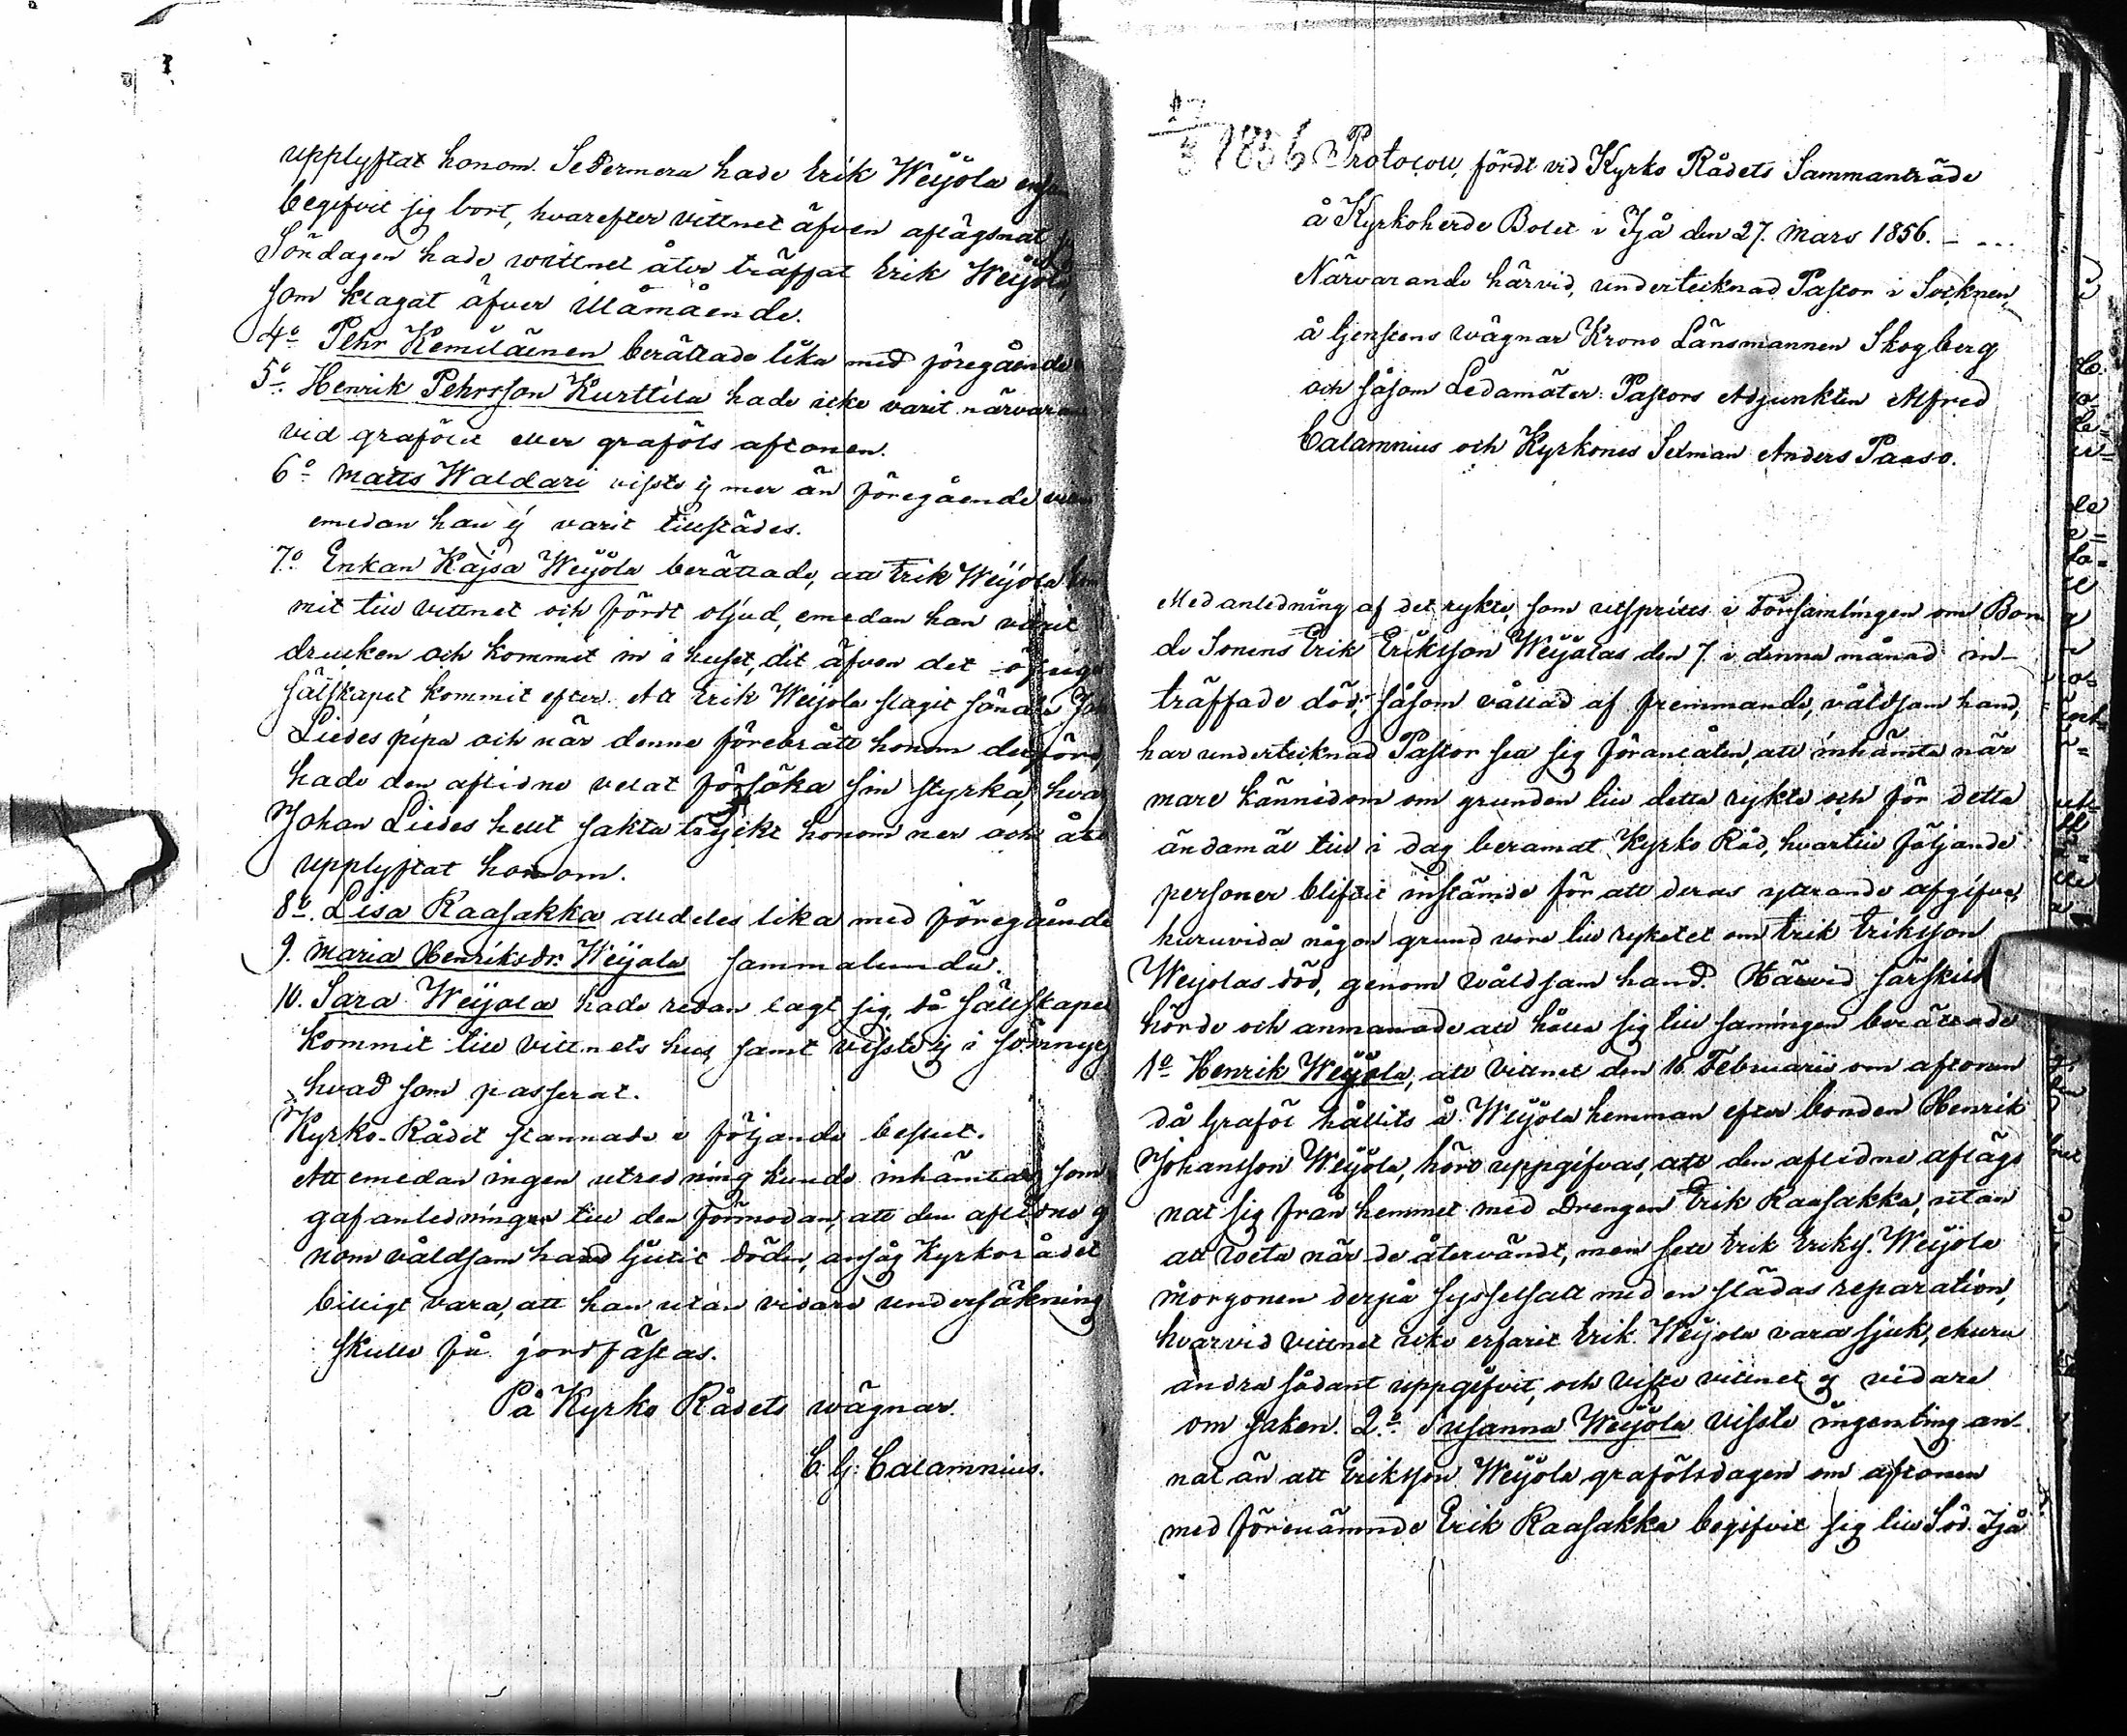 upplyftat honom. Sedermera hade Erik Weijola
begifvit sig bort, hvarefter vittnet äfven aflägsnat
Söndagen hade wittnet åter träffat Erik Weijola,
som klagat öfver illåmående.
4o Pehr Kemiläinen berättade lika med föregående
5o Henrik Pehrsson Kurttila hade icke varit närvaran
vid graföllet eller graföls aftonen.
6o Matts Waldari visste ej mer än föregående
emedan han ej varit tillstädes.
7o Enkan Kajsa Weijola berättade, att Erik Weijola kom
mit till vittnet och fördt oljud, emedan han varit
drucken och kommit in i huset, dit äfven det öfriga
sällskapet kommit efter. Att Erik Weijola slagit sönder
Liedes pipa och när denne förebrått honom derföre,
hade den aflidne velat försöka sin styrka, hvar
Johan Liedes helt sakta tryckt honom ner och åter
upplyftat honom.
8o. Lisa Raasakka alldeles lika med föregående
9. Maria Henriksdr. Weijola sammalunda.
10. Sara Weijola hade redan lagt sig, då sällskapet
kommit till vittnets hus, samt visste ej i sömnyra
hvad som passerat.
Kyrko-Rådet stannade i följande beslut.
Att emedan ingen utredning kunde inhämtas, som
gaf anledningar till den förmodan, att den aflidne g
nom våldsam hand ljutit döden, ansåg Kyrkorådet
billigt vara, att han utan vidare undersökning
skulle få jordfästas.
På Kyrko Rådets wägnar.
C. G. Calamnius.
1856 Protocoll, fördt vid Kyrko Rådets Sammanträde
å Kyrkoherde Bolet i Ijå den 27. Mars 1856.
Närvarande härvid, undertecknad Pastor i Socknen,
å tjenstens wägnar Krono Länsmannen Skogberg
och såsom Ledamöter: Pastors Adjunkten Alfred
Calamnius och Kyrkones Sexman Anders Paaso.
Med anledning af det rykte, som utspridts i Församlingen om Bon
de Sonens Erik Eriksson Weijolas den 7. i denna månad in-
träffade död, såsom vållad af fremmande, våldsam hand,
har undertecknad Pastor sea sig föranlåten, att inhämta när
mare kännedom om grunden till detta rykte och för detta
ändamål till i dag beramat Kyrko Råd, hvartill följande
personer blifvit instämde för att deras yttrande afgifva,
huruvida någon grund vore till ryktet om Erik Eriksson
Weijolas död, genom wåldsam hand. Härvid särskildt
hörde och anmanade att hålla sig till sanningen berättade
1o Henrik Weijola, att vittnet den 16 Februarii om aftonen
då graföl hållits å Weijola hemman efter bonden Henrik
Johansson Weijola, hört uppgifvas, att den aflidne aflägs
nat sig från hemmet med Drengen Erik Raasakka, utan
att weta när de återvändt, men sett Erik Erikss. Weijola
morgonen derpå sysselsatt med en slädas reparation,
hvarvid vittnet icke erfarit Erik Weijola vara sjuk, ehuru
andra sådant uppgifvit, och visste vittnet ej vidare
om saken. 2o Susanna Weijola visste ingenting an-
nat än att Eriksson Weijola grafölsdagen om aftonen
med förenämnde Erik Raasakka begifvit sig till Söd. Ijå